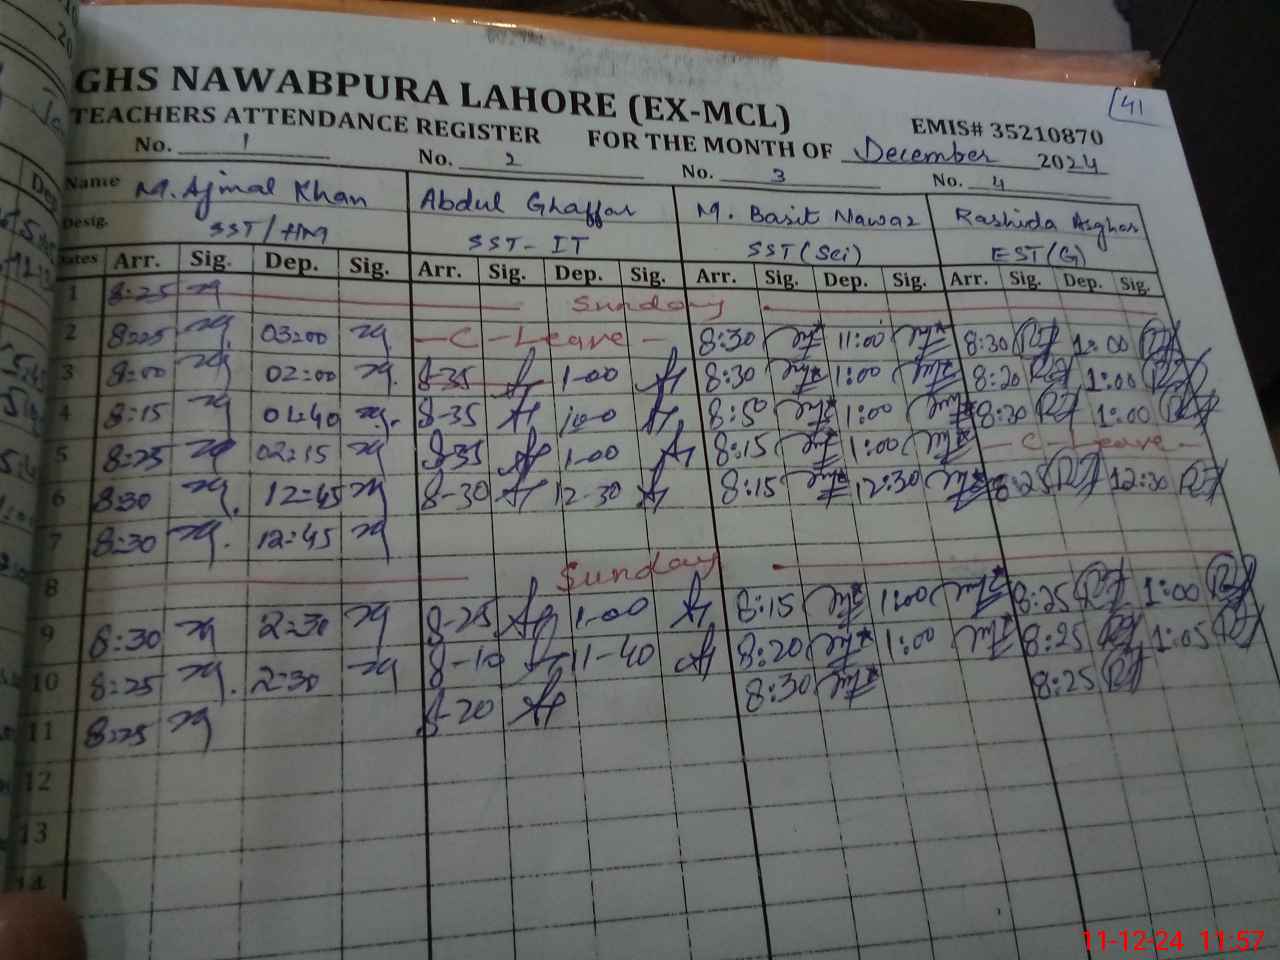 GHS NAWABPURA LAHORE (EX-MCL)
41
TEACHERS ATTENDANCE REGISTER FOR THE MONTH OF December 2024
EMIS# 35210870
No. 1 No. 2 No. 3 No. 4
Name M. Ajmal Khan Abdul Ghaffar M. Basit Nawaz Rashida Asghar
Desig. SST/HM SST-IT SST (Sci) EST (G)
Dates Arr. Sig. Dep. Sig. Arr. Sig. Dep. Sig. Arr. Sig. Dep. Sig. Arr. Sig. Dep. Sig.
1 8:25 Sunday
2 8:25 03:00 - C - Leave - 8:30 11:00 8:30 1:00
3 8:00 02:00 8-35 1-00 8:30 1:00 8:20 1:00
4 8:15 01:40 8-35 1-00 8:50 1:00 8:20 1:00
5 8:25 02:15 8-35 1-00 8:15 1:00 - C - Leave -
6 8:30 12:45 8-30 12-30 8:15 12:30 8:25 12:30
7 8:30 12:45
8 Sunday
9 8:30 2:30 8-25 1-00 8:15 1:00 8:25 1:00
10 8:25 2:30 8-10 11-40 8:20 1:00 8:25 1:05
11 8:25 8-20 8:30 8:25
12
13
14
11-12-24 11:57